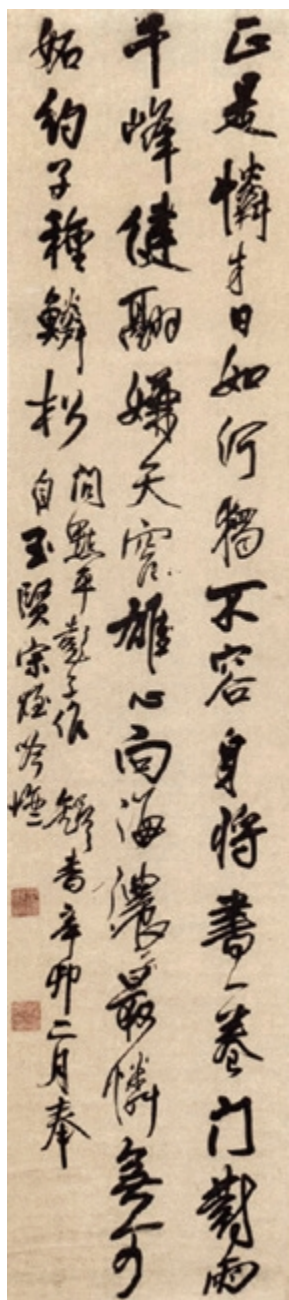 正是憐才日如何獨不容身將書一卷門對雨
千峰健翮嫌天窄雄心向海濃最憐無可
妬約子種鱗松
問黜平彭子作 書辛卯二月奉
自玉賢宗姪吟